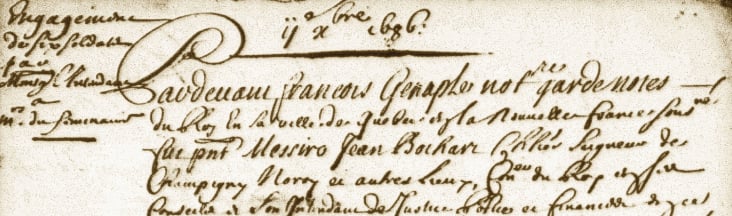 Engagement
de six soldats
par
Monsr. L'Intendant
a
Mr. du Sommaire
ij xbre 1686.
Pardevant francois Genaple nottre gardenotes
du Roy En sa ville de Quebec et la Nouvelle france sousné.
fut pnt Messire Jean Bochart Chler Seigneur de
Champigny Noroy et autres Lieux, Coner du Roy en ses
Conseils et Son Intendant de Justice police et finances de ce